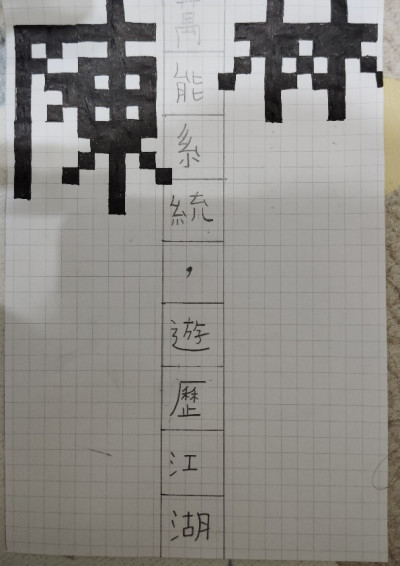 林
萬能系統，遊歷江湖
陳